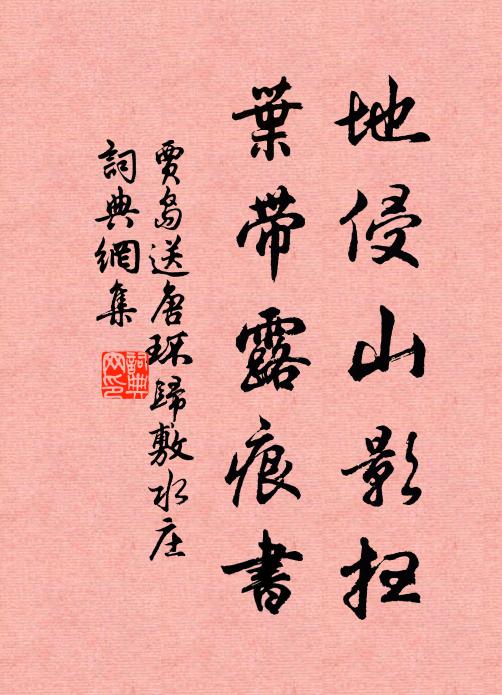 地侵山影扫
葉帶露痕書
賈島送唐環歸敷水庄
詞典網集
詞典網印